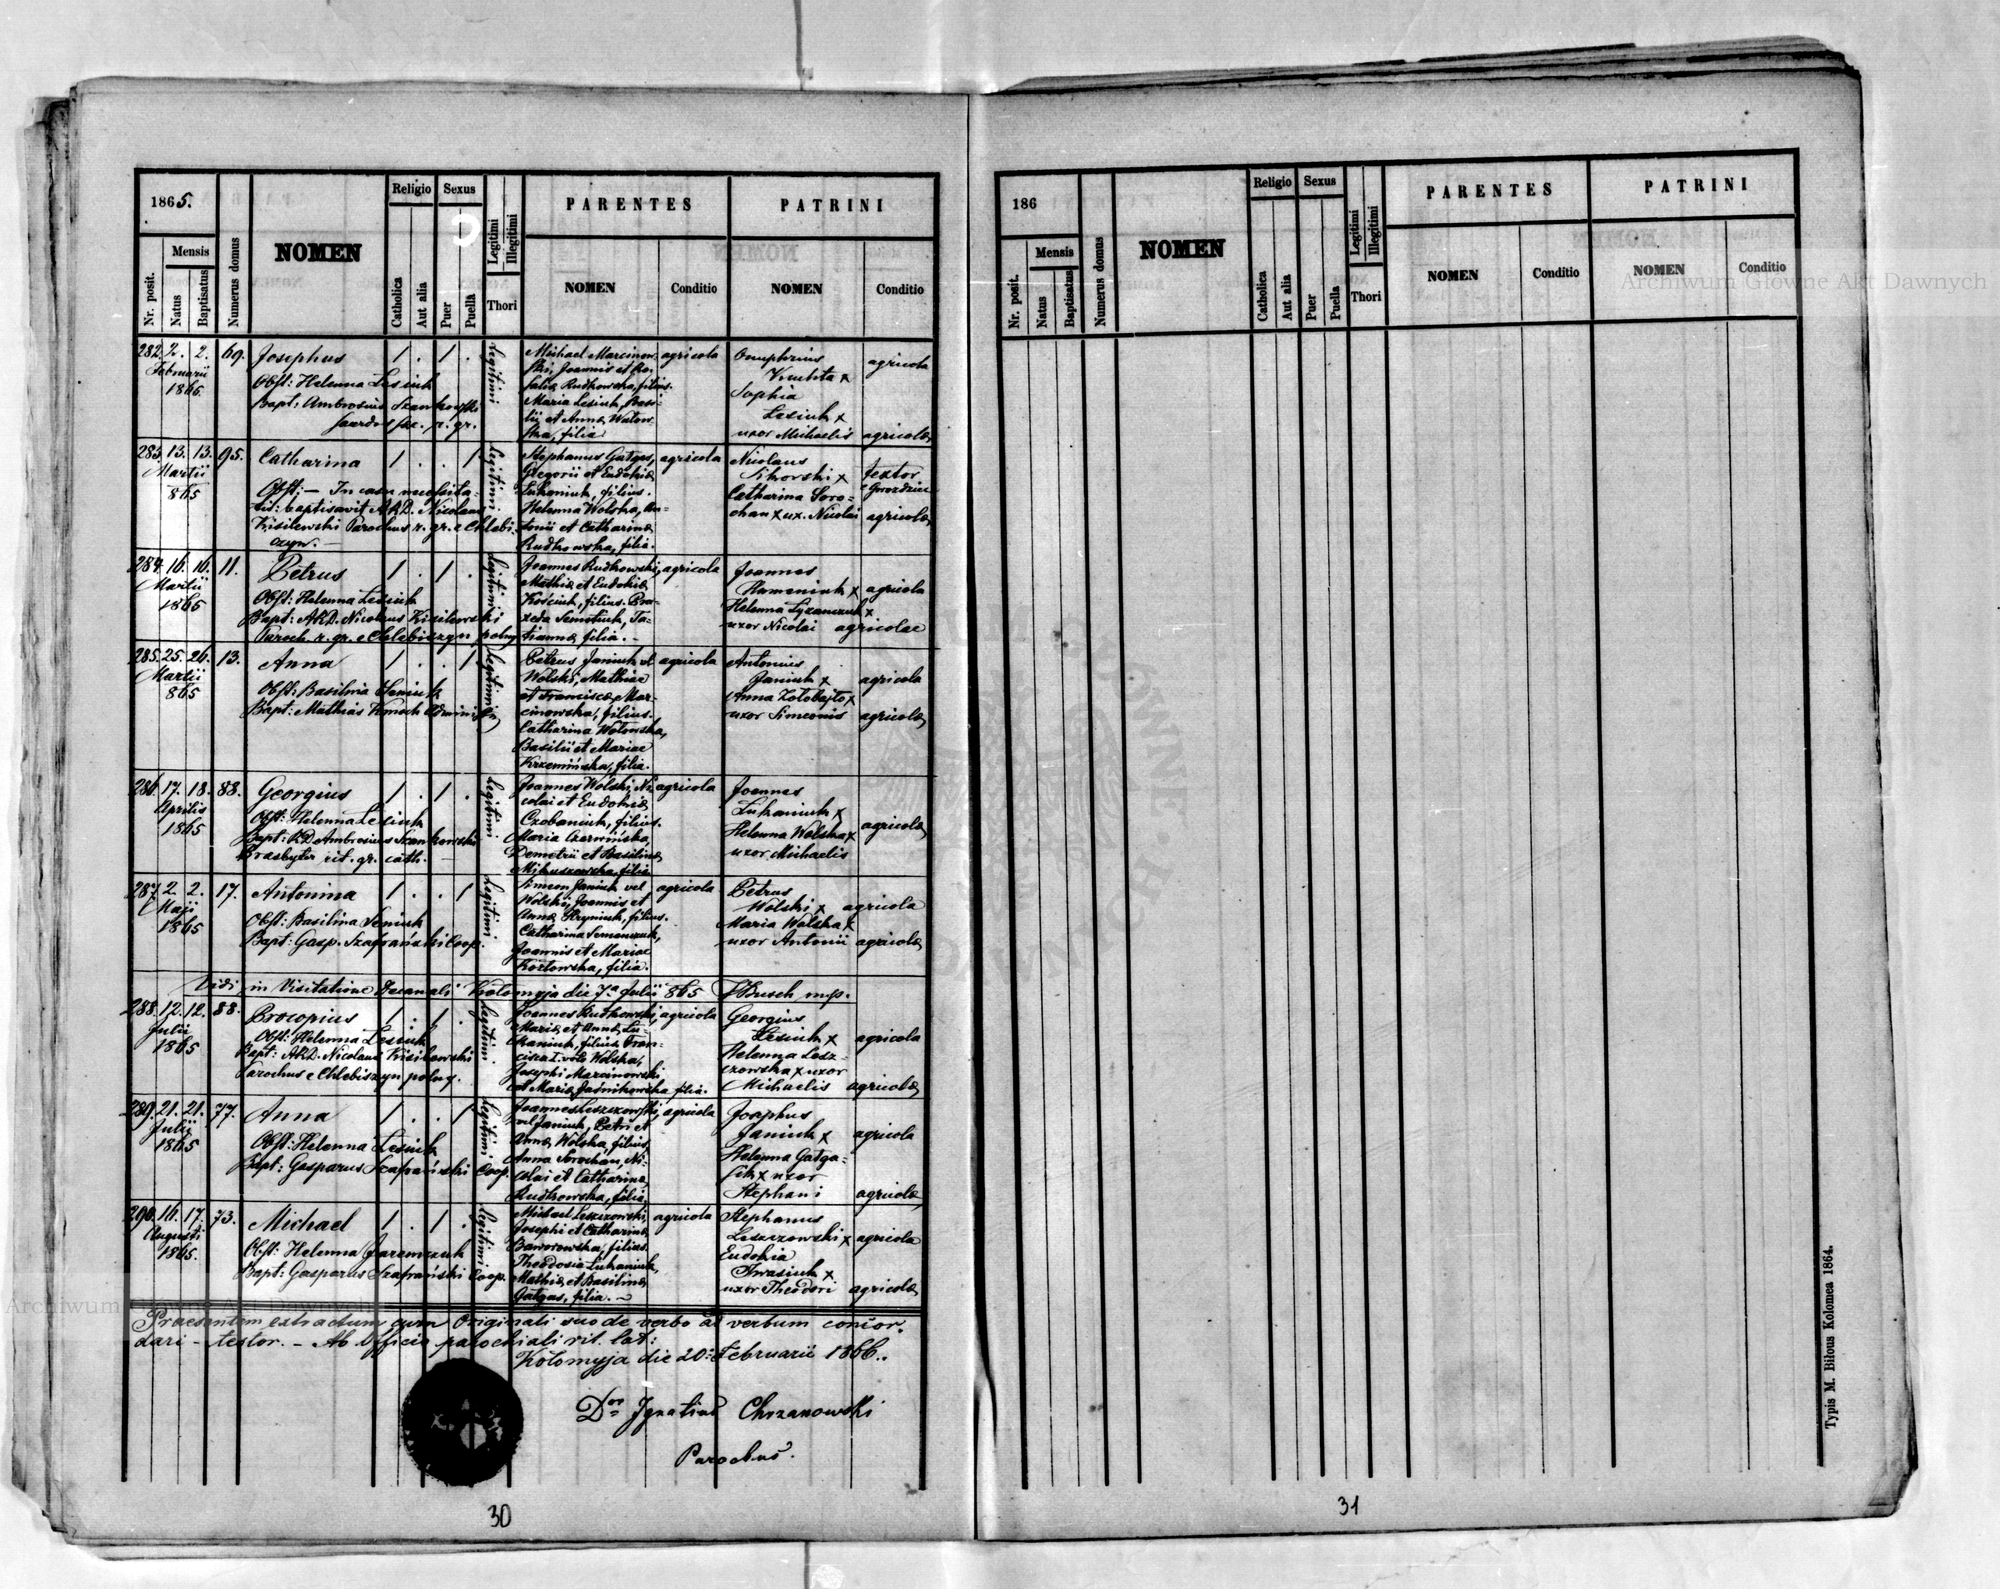 1865.
Nr. posit.
Mensis
Natus
Baptisatus
Numerus domus
NOMEN
Religio
Catholica
Aut alia
Sexus
Puer
Puella
Legitimi
Illegitimi
Thori
PARENTES
NOMEN
Conditio
PATRINI
NOMEN
Conditio
282. 2. 2. 69.
Februarii
1865.
Josephus
Obst: Helenna Lesiuk
Bapt: Ambrosius Szankowski
1 . 1 .
legitimi
Michael Marcinow-
ski, Joannis et Ro-
salia Rudkowska, filius.
Maria Lesiuk, Basi-
lii et Anna Wolow-
ska, filia
agricola
Onuphrius
Sophia
Lesiuk x
uxor Michaelis
agricola
agricola
283. 13. 13. 95.
Martii
865
Catharina
Obst: — In casu necessita-
tis: baptisavit A.R.D. Nicolaus
Kisilewski Parochus r. gr. e Chlebi-
czyn. —
1 . . 1
legitimi
Stephanus Gatgas,
Gregorii et Eudokia
Lukaniuk, filius.
Helenna Wolska, An-
tonii et Catharina
Rudkowska, filia.
agricola
Nicolaus
Sikorski x
Catharina Soro-
chan x ux. Nicolai
textor
e Gwozdziec
agricola
284. 16. 16. 11.
Martii
1865
Petrus
Obst: Helenna Lesiuk
Bapt: A.R.D. Nicolaus Kisilewski
Paroch. r. gr. e Chlebiczyn polny
1 . 1 .
legitimi
Joannes Rudkowski,
Mathia et Eudokia
Kościuk, filius. Pra-
xeda Semotiuk, Ta-
tianna filia. -
agricola
Joannes
Humeniuk x
Helenna Lyzanczuk x
uxor Nicolai
agricola
agricolae
285. 25. 26. 13.
Martii
865
Anna
Obst: Basilina Seniuk
Bapt: Mathias Kmoch Administr.
1 . . 1
legitimi
Petrus Janiuk vel
Wolski, Mathiae
et Francisca Mar-
cinowska, filius.
Catharina Wolowska,
Basilii et Mariae
Krzemińska, filia.
agricola
Antonius
Janiuk x
Anna Zolobajlo x
uxor Simeonis
agricola
agricola
286. 17. 18. 88.
Aprilis
1865
Georgius
Obst: Helenna Lesiuk
Bapt: R.D. Ambrosius Szankowski
Presbyter rit. gr. cath. —
1 . 1 .
legitimi
Joannes Wolski, Ni-
colai et Eudokia
Czobaniuk, filius.
Maria Czerwińska,
Demetrii et Basilina
Mikuszowska, filia
agricola
Joannes
Lukaniuk x
Helenna Wolska x
uxor Michaelis
agricola
287. 2. 2. 17.
Maji
1865
Antonina
Obst: Basilina Seniuk
Bapt: Gasp. Szafrański Coop.
1 . . 1
legitimi
Simeon Janiuk vel
Wolski, Joannis et
Anna Hryniuk, filius.
Catharina Semanczuk,
Joannis et Mariae
Kozlowska, filia.
agricola
Petrus
Wolski x
Maria Wolska x
uxor Antonii
agricola
agricola
Vidi in Visitatione Decanali Kołomyja die 7a Julii 865 FBusch mp.
288. 12. 12. 88.
Julii
1865
Procopius
Obst: Helenna Lesiuk
Bapt: A.R.D. Nicolaus Kisilewski
Parochus e Chlebiszyn polny.
1 . 1 .
legitimi
Joannes Rudkowski,
Maria et Anna Lu-
kaniuk, filius. Fran-
cisca I. voto Wolska,
Josephi Marcinowski
et Maria Jaśnikowska filia.
agricola
Georgius
Lesiuk x
Helenna Lesz-
czowska x uxor
Michaelis
agricola
agricola
289. 21. 21. 77.
Julii
1865
Anna
Obst: Helenna Lesiuk
Bapt: Gasparus Szafrański Coop.
1 . . 1
legitimi
Joannes Leszczowski,
vel Janiuk, Petri et
Anna Wolska, filius,
Anna Sorochan, Ni-
colai et Catharina
Rudkowska, filia.
agricola
Josephus
Janiuk x
Helenna Gatga-
sik x uxor
Stephani
agricola
agricola
290. 16. 17. 73.
Augusti
1865.
Michael
Obst: Helenna Jaremczuk
Bapt: Gasparus Szafrański Coop.
1 . 1 .
legitimi
Michael Leszczowski,
Josephi et Catharina
Baworowska, filius.
Theodosia Lukaniuk,
Mathia et Basilina
Gatgas, filia. -
agricola
Stephanus
Leszczowski x
Eudokia
Iwasiuk x
uxor Theodori
agricola
agricola
Praesentem extractum cum Originali suo de verbo ad verbum concor-
dari - testor. - Ab officio parochiali rit. lat:
Kołomyja die 20: Februarii 1866.
Dor Ignatius Chrzanowski
Parochus.
30
186
Nr. posit.
Mensis
Natus
Baptisatus
Numerus domus
NOMEN
Religio
Catholica
Aut alia
Sexus
Puer
Puella
Legitimi
Illegitimi
Thori
PARENTES
NOMEN
Conditio
PATRINI
NOMEN
Conditio
Typis M. Biłous Kolomea 1864.
31
Archiwum Główne Akt Dawnych
Archiwum Główne Akt Dawnych